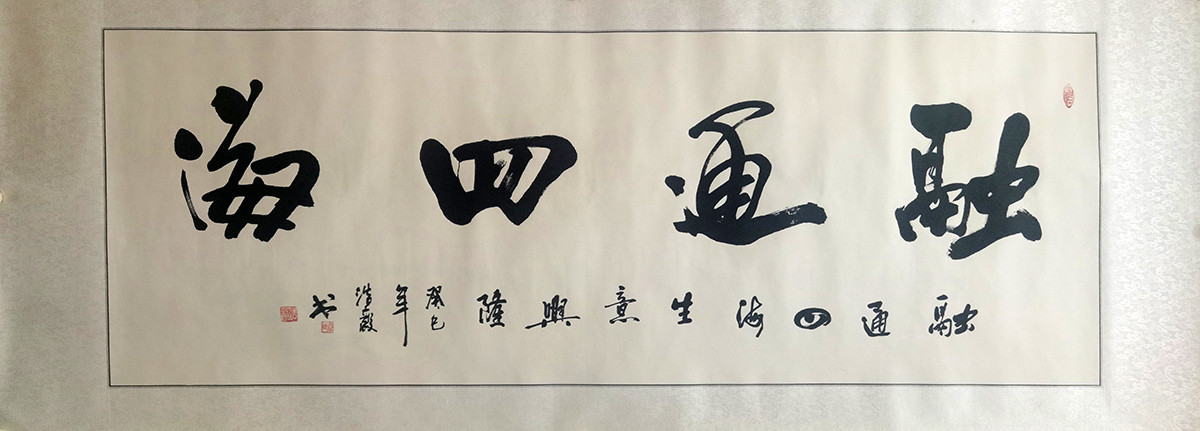 融通四海
融通四海生意興隆
癸巳
年
書